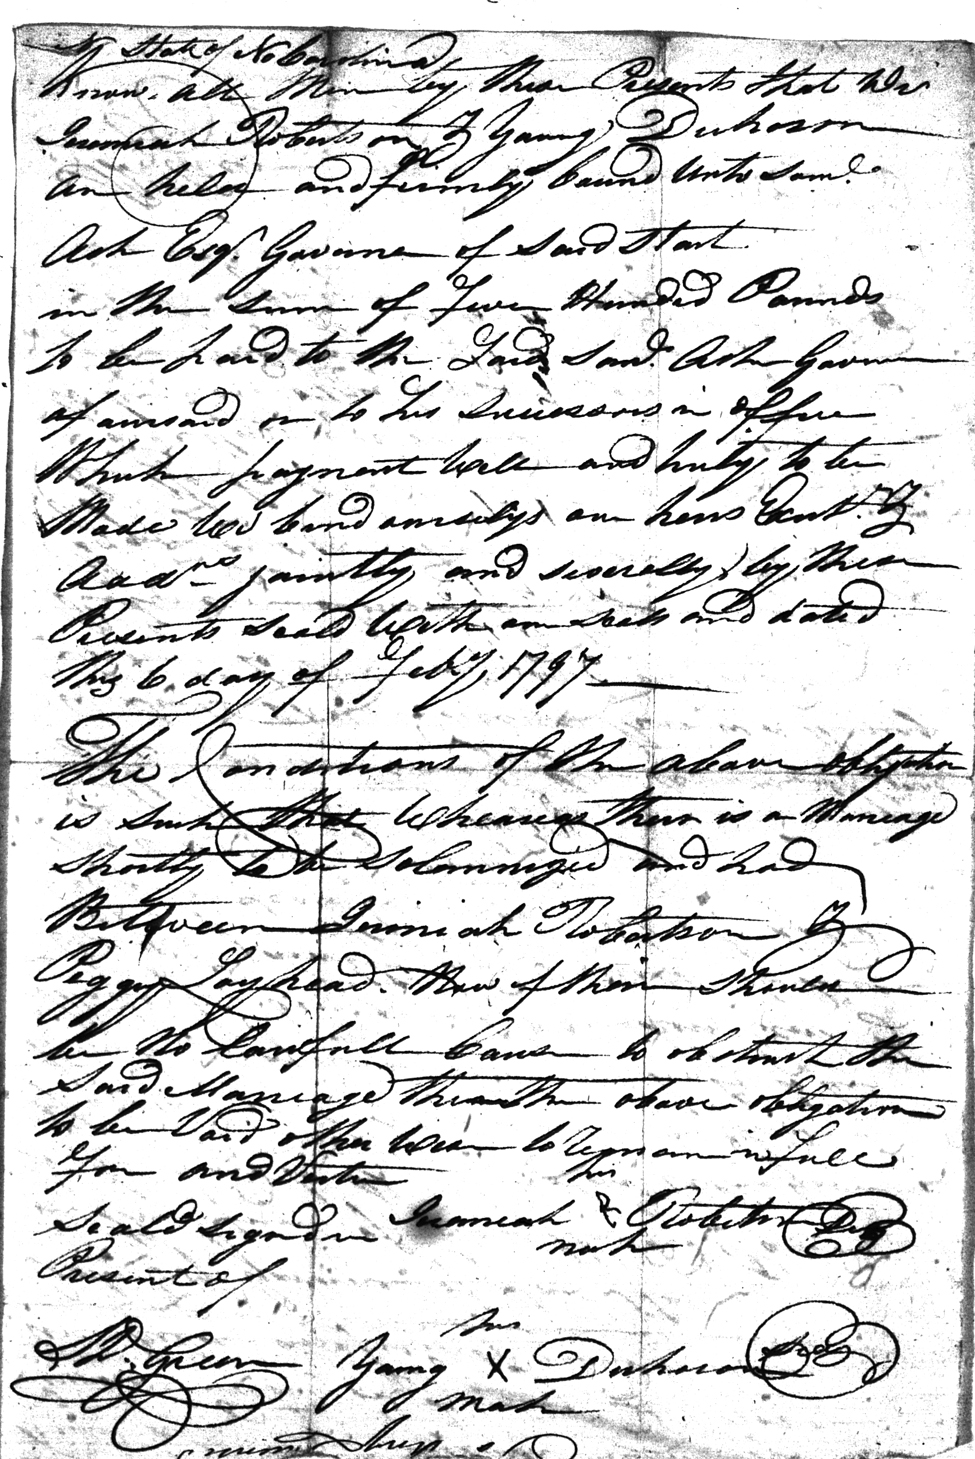 State of No Carolina
Know all Men by these Presents that We
Jeremiah Robertson & Young Dickoson
are held and firmly bound Unto Saml.
Ash Esqr. Governer of said Start
in the sum of five Hunded Pounds
to be paid to the Said Saml. Ash Govener
afairsaid or to his Successors in office
Which payment well and truly to be
Made We bind ourselys our heirs Exut. &
Aadms jointly and severelly by these
Presents seald With our seals and dated
this 6 day of Feby. 1797
The Conditions of the above obligation
is such that Whareas there is a Marriage
shortly to be Solemnized and had
Between Jeremiah Robertson &
Peggy Layhead. Now if their should
be No Lawfull Cause to obstruct the
Said Marriage then the above obligation
to be Void other Wise to Remain in full
forse and Virtue
his
Seald signd in Jeremiah Robertson Seal
mark
Present of
his
W. Green Young X Dickoson Seal
mark